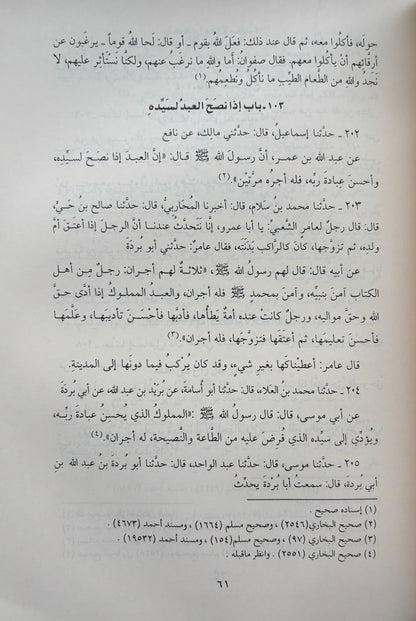 حوله، فأكلوا معه، ثم قال عند ذلك: فَعَلَ اللهُ بقوم ـ أو قال: لَحا اللهُ قوماً ـ يرغبون عن
أرِقَّائِهم أن يأكلوا معهم. فقال صفوانُ: أما واللهِ ما نرغبُ عنهم، ولكنَّا نَستَأثِر عليهم، لا
نَجدُ واللهِ من الطعام الطيِّبِ ما نأكلُ ونُطعِمُهم.(١)
١٠٣ـ باب إذا نصَحَ العبدُ لسيّدِهِ
٢٠٢ ـ حدَّثنا إسماعيلُ، قال: حدَّثني مالك، عن نافع
عن عبد الله بن عمر، أنَّ رسولَ الله ﷺ قال: «إنَّ العبدَ إذا نصَحَ لسيِّدِه،
وأحسنَ عبادةَ ربِّه، فله أجرُه مرَّتين».(٢)
٢٠٣ ـ حدَّثنا محمد بنُ سلَام، قال: أخبرنا المُحَاربيُّ، حدَّثنا صالح بن حَيّ،
قال: قال رجلٌ لعامرٍ الشَّعبيِّ: يا أبا عمرو، إنَّا نَتَحدَّثُ عندنا أنَّ الرجلَ إذا أعتقَ أُمَّ
ولدِه، ثم تزوَّجها، كان كالراكبِ بَدَنَتَه، فقال عامر: حدَّثني أبو بردةَ
عن أبيه قال: قال لهم رسولُ الله ﷺ، «ثلاثةٌ لهم أجران: رجلٌ مِن أهل
الكتاب آمنَ بنبيِّه، وآمنَ بمحمدٍ ﷺ فله أجران، والعبدُ المملوكُ إذا أدَّى حقَّ
الله وحقَّ مواليه، ورجلٌ كانت عنده أمةٌ يَطأُها، فأدَّبها فأحْسَنَ تأديبَها، وعلَّمَها
فأحسنَ تعليمَها، ثم أعتقَها فتزوَّجَها، فله أجران».(٣)
قال عامر: أعطيناكَها بغيرِ شيءٍ، وقد كان يُركَبُ فيما دونَها إلى المدينةِ.
٢٠٤ ـ حدَّثنا محمد بنُ العلاء، قال: حدَّثنا أبو أسامةَ، عن بُرَيْد بن عبد الله، عن أبي بُردَةَ
عن أبي موسى، قال: قال رسولُ الله ﷺ: «المملوكُ الذي يُحسِنُ عبادةَ ربِّه،
ويُؤدِّي إلى سيِّدِه الذي فُرِضَ عليه من الطَّاعة والنَّصيحة، له أجران».(٤)
٢٠٥ ـ حدَّثنا موسى، قال: حدَّثنا عبد الواحد، قال: حدَّثنا أبو بُردةَ بنُ عبد الله بنِ
أبي بُردةَ، قال: سمعتُ أبا بُرْدةَ يحدِّثُ
(١) إسناده صحيح .
(٢) صحيح البخاري (٢٥٤٦) ، وصحيح مسلم (١٦٦٤) ، ومسند أحمد (٤٦٧٣) .
(٣) صحيح البخاري (٩٧) ، وصحيح مسلم(١٥٤) ، ومسند أحمد (١٩٥٣٢) .
(٤) صحيح البخاري (٢٥٥١) . وانظر ماقبله .
٦١